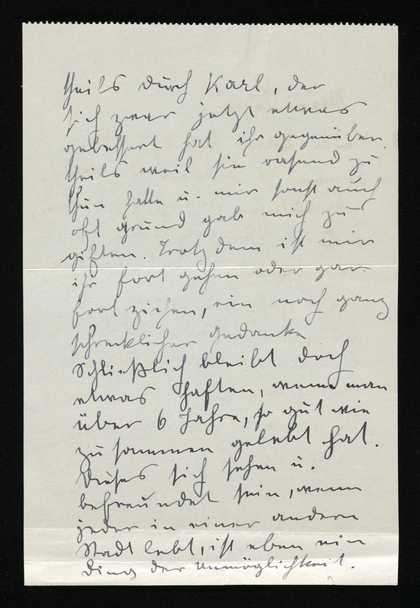 theils durch Karl, der
sich zwar jetzt etwas
gebessert hat ihr gegenüber,
theils weil sie rasend zu
thun hatte u. mir sonst auch
oft grund gab mich zu
giften. Trotzdem ist mir
ihr fort gehen oder gar
fort ziehen, ein noch ganz
schrecklicher gedanke
Schließlich bleibt doch
etwas haften, wenn man
über 6 Jahre, so gut wie
zusammen gelebt hat.
Dieses sich sehen u.
befreundet sein, wenn
jeder in einer andern
Stadt lebt, ist eben ein
Ding der Unmöglichkeit.